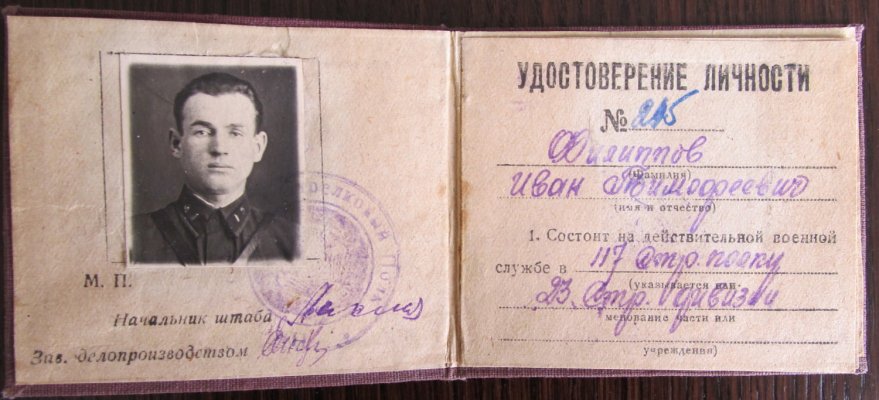 М. П.
Начальник штаба
Зав. делопроизводством
стрелковый полк
УДОСТОВЕРЕНИЕ ЛИЧНОСТИ
№ 215
Филиппов
(фамилия)
Иван Тимофеевич
(имя и отчество)
1. Состоит на действительной военной
службе в 117 стр. полку
(указывается наи-
23 стр. дивизии
менование части или
учреждения)